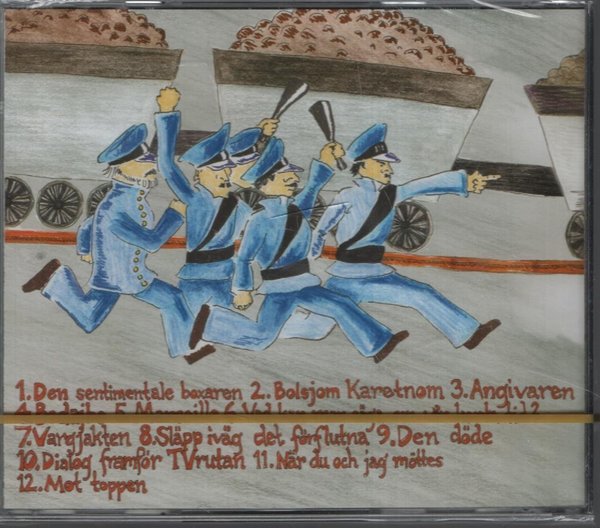 1. Den sentimentale boxaren 2. Bolsjom Karetnom 3. Angivaren
7. Vargjakten 8. Släpp iväg det förflutna 9. Den döde
10. Dialog framför TVrutan 11. När du och jag möttes
12. Mot toppen